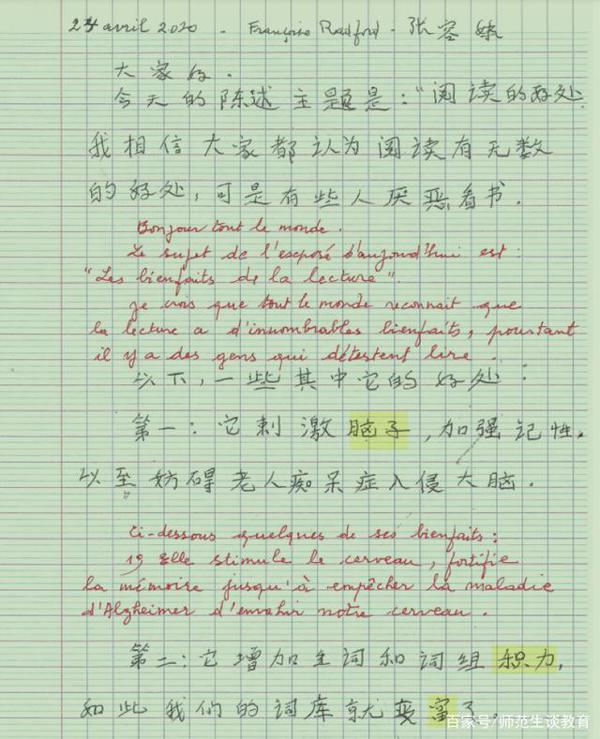 24 avril 2020 . Françoise Radford . 张容
大家好．
今天的陈述主题是："阅读的好处
我相信大家都认为阅读有无数
的好处，可是有些人厌恶看书．
Bonjour tout le monde .
Le sujet de l'exposé d'aujourd'hui est :
"Les bienfaits de la lecture".
je crois que tout le monde reconnait que
la lecture a d'innombrables bienfaits, pourtant
il y a des gens qui détestent lire .
以下，一些其中它的好处：
第一：它刺激脑子，加强记性，
以至妨碍老人痴呆症入侵大脑．
Ci-dessous quelques de ses bienfaits :
1º Elle stimule le cerveau, fortifie
la mémoire jusqu'à empêcher la maladie
d'Alzheimer d'envahir notre cerveau .
第二：它增加生词和词组积力，
如此我们的词库就变富了．
百家号/师范生谈教育